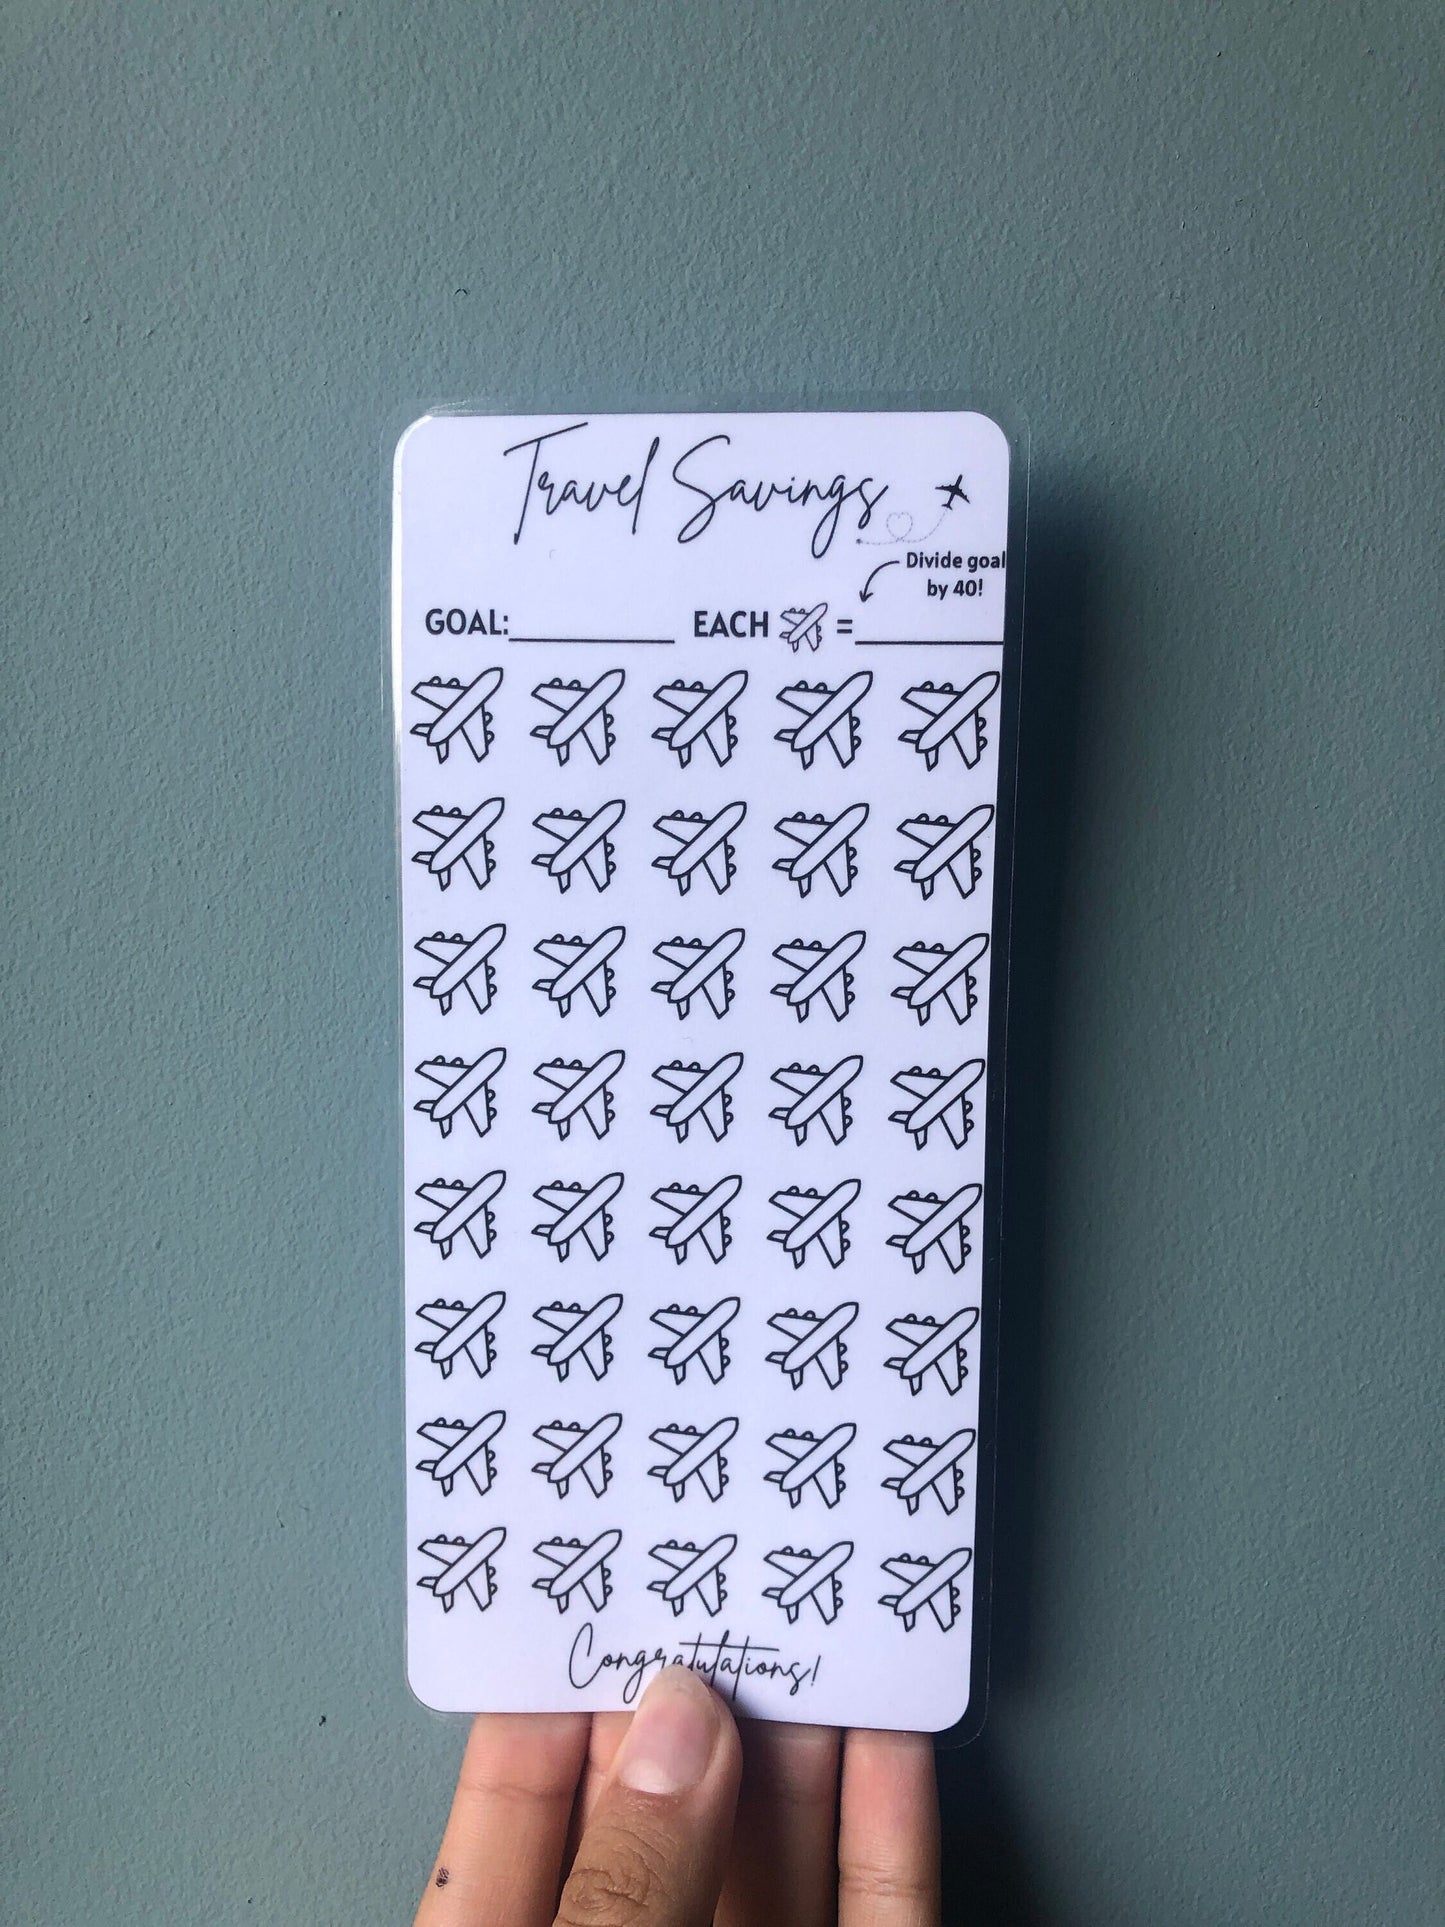 Travel Savings
Divide goal
by 40!
GOAL:__________ EACH =__________
Congratulations!